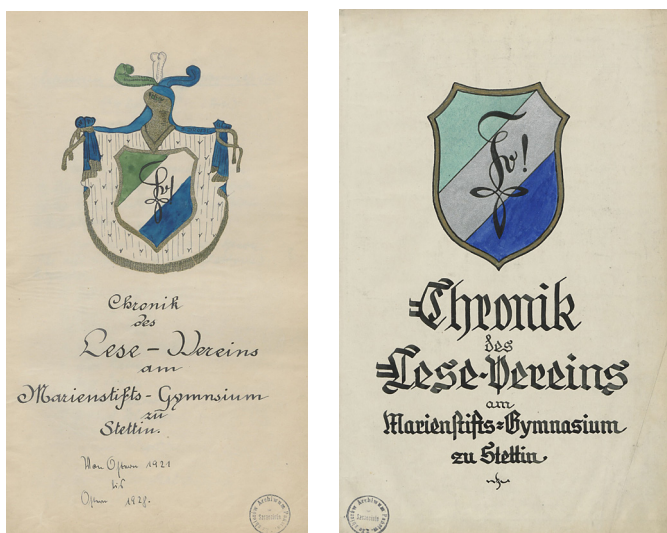 Chronik
des
Lese-Vereins
am
Marienstifts-Gymnsium
zu
Stettin.
Von Ostern 1921
bis
Ostern 1928.
Chronik
des
Lese-Vereins
am
Marienstifts-Gymnasium
zu Stettin.